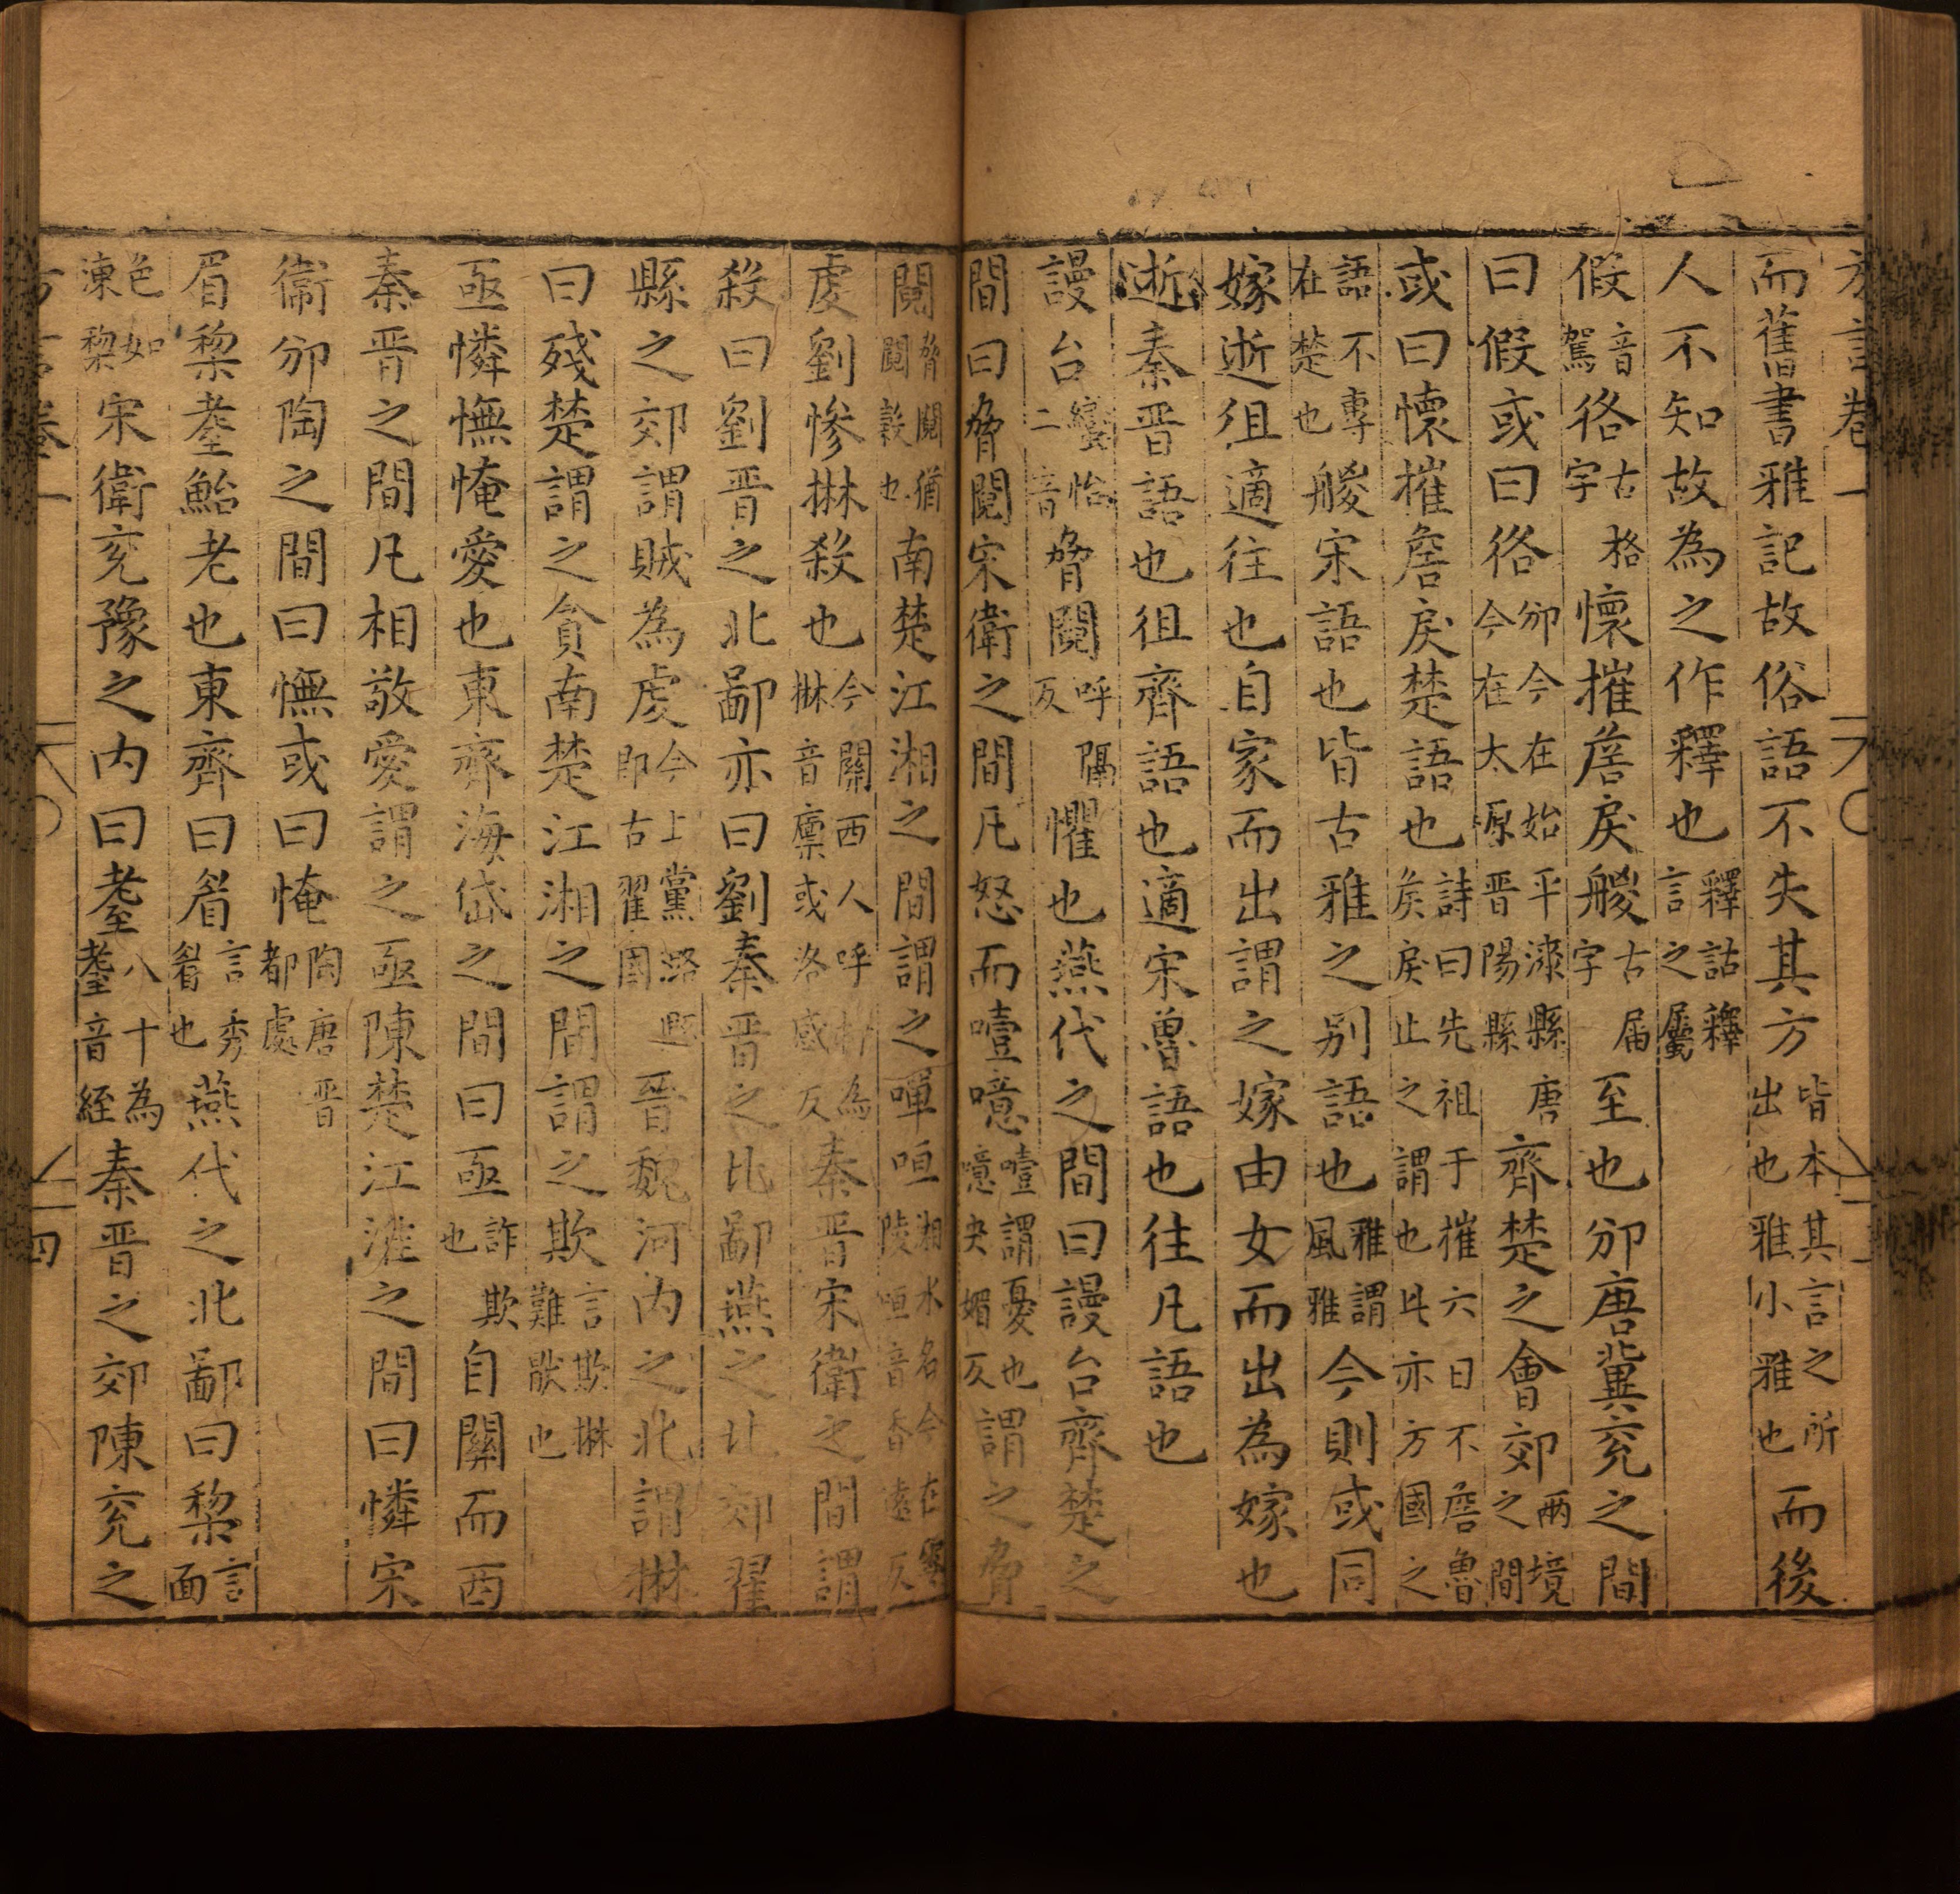 而舊書雅記故俗語不失其方皆本其言之所出也雅小雅也而後
人不知故為之作釋也釋詁釋言之屬
假音駕佫古格字懷摧詹戾艐古屆字至也邠唐冀兗之間
曰假或曰佫邠今在始平漆縣唐今在太原晉陽縣齊楚之會郊兩境之間
或曰懷摧詹戾楚語也詩曰先祖于摧六日不詹魯矦戾止之謂也此亦方國之
語不專在楚也艐宋語也皆古雅之别語也雅謂風雅今則或同
嫁逝徂適往也自家而出謂之嫁由女而出為嫁也
逝秦晉語也徂齊語也適宋魯語也往凡語也
謾台蠻怡二音脅鬩呼隔反懼也燕代之間曰謾台齊楚之
間曰脅鬩宋衛之間凡怒而噎噫噎謂憂也噫央媚反謂之脅
鬩脅鬩猶鬩穀也南楚江湘之間謂之嘽咺湘水名今在零陵咺音香遠反
虔劉慘㨆殺也今關西人呼打為㨆音廩或洛感反秦晉宋衛之間謂
殺曰劉晉之北鄙亦曰劉秦晉之北鄙燕之北郊翟
縣之郊謂賊為虔今上黨潞縣即古翟國晉魏河內之北謂㨆
曰殘楚謂之貪南楚江湘之間謂之欺言欺㨆難猒也
亟憐憮㤿愛也東齊海岱之間曰亟詐欺也自關而西
秦晉之間凡相敬愛謂之亟陳楚江淮之間曰憐宋
衞邠陶之間曰憮或曰㤿陶唐晉都處
眉棃耋鮐老也東齊曰眉言秀眉也燕代之北鄙曰棃言面
色如凍棃宋衛兗豫之內曰耋八十為耋音絰秦晉之郊陳兗之